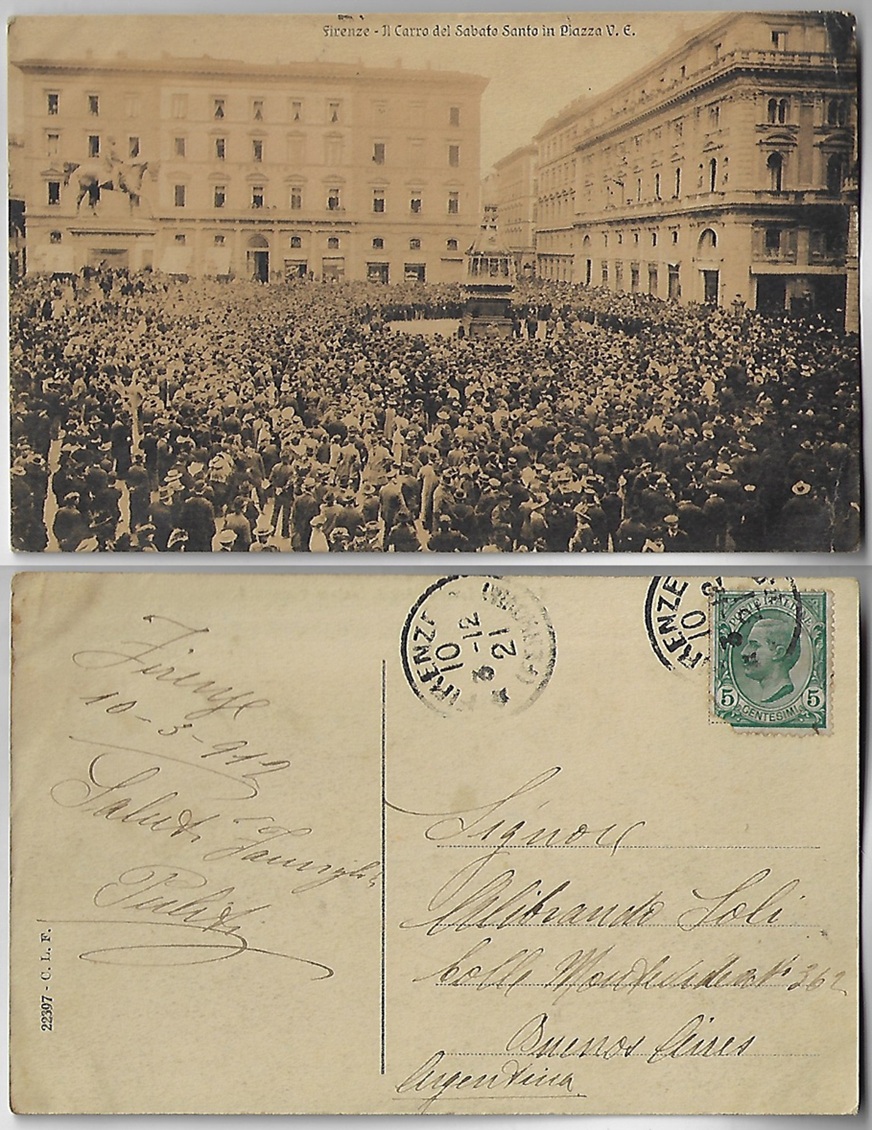 Firenze - Il Carro del Sabato Santo in Piazza V. E.
Firenze
10-3-912
Saluti Famiglia
Pulidi
22397 - C. L. F.
FIRENZE
10
3-12
21
FIRENZE
10
POSTE ITALIANE
5 5
CENTESIMI
Signore
Alibrando Soli
Calle Montevideo No 362
Buenos Aires
Argentina